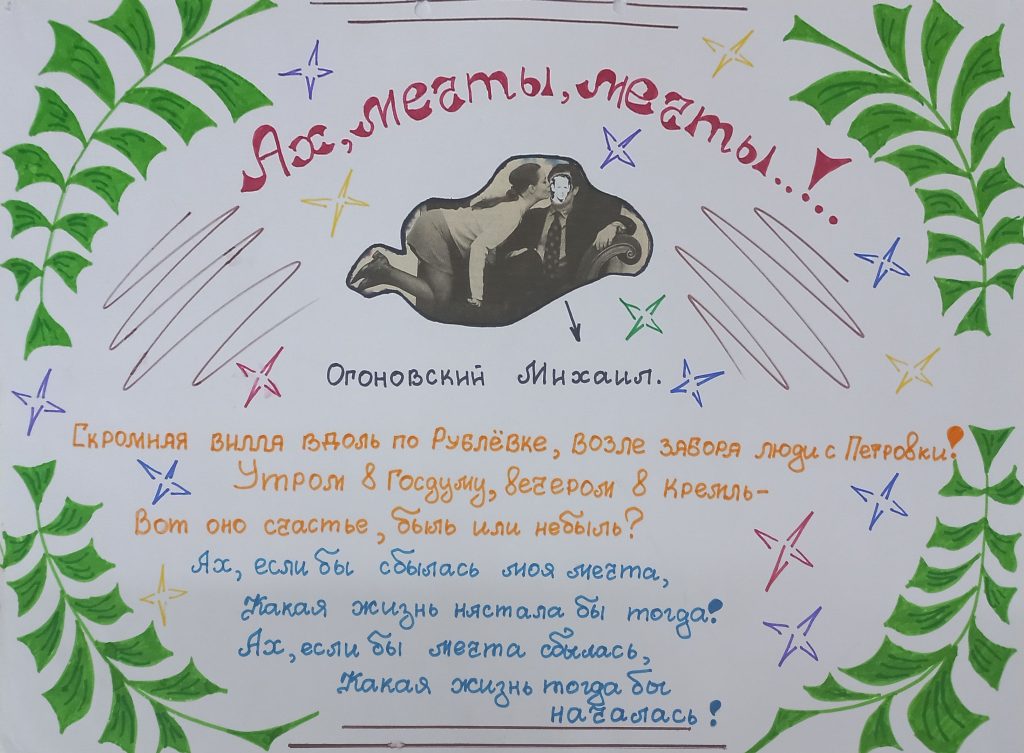 Ах, мечты, мечты...!
Огоновский Михаил.
Скромная вилла вдоль по Рублёвке, возле забора люди с Петровки!
Утром в Госдуму, вечером в Кремль-
Вот оно счастье, быль или небыль?
Ах, если бы сбылась моя мечта,
Какая жизнь нястала бы тогда!
Ах, если бы мечта сбылась,
Какая жизнь тогда бы
началась!